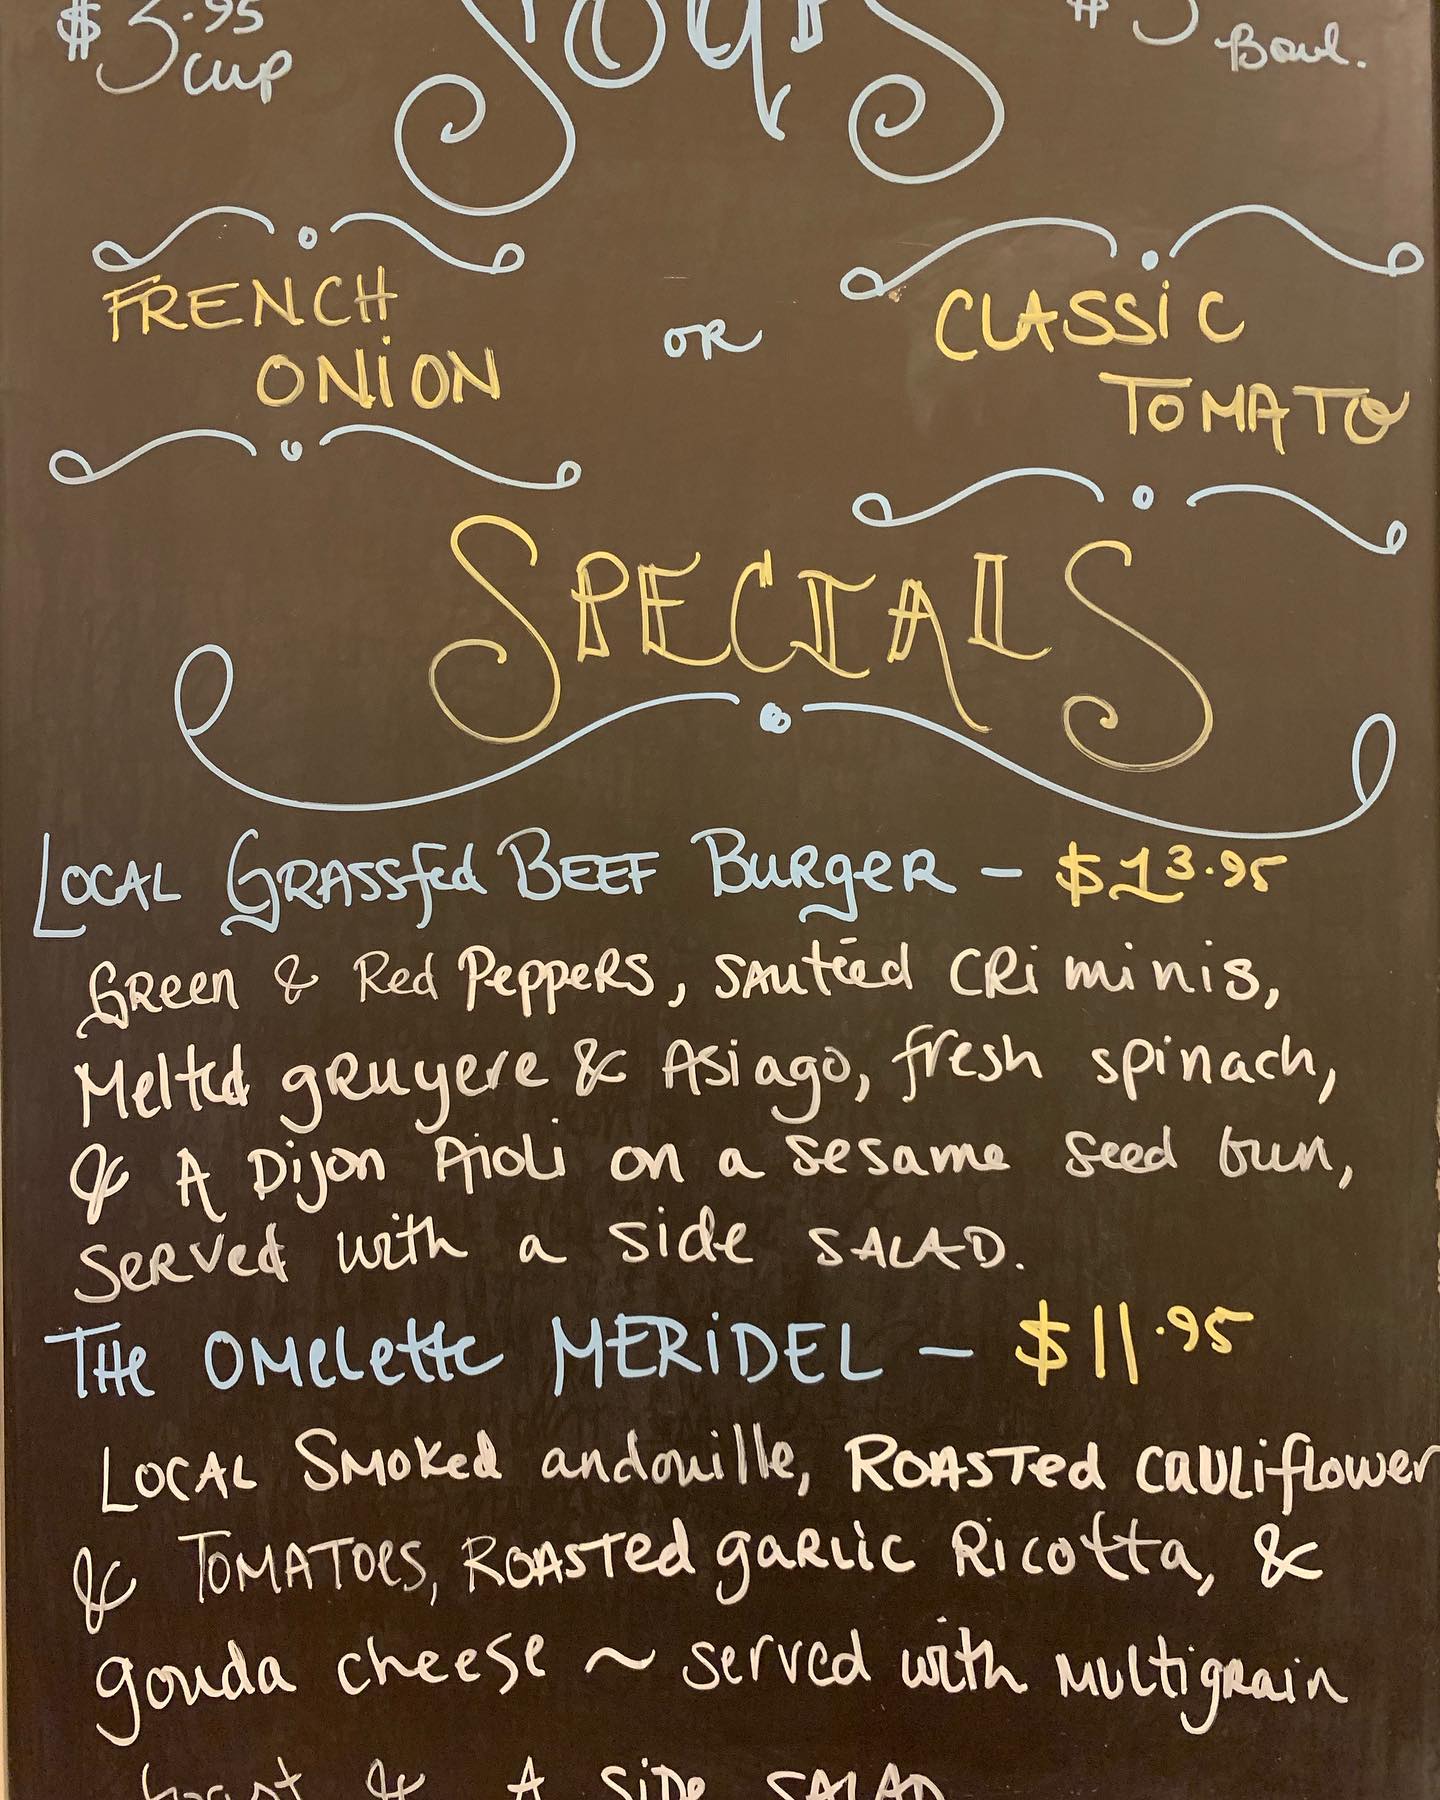 $3.95 cup SOUPS $5 Bowl.
FRENCH ONION OR CLASSIC TOMATO
SPECIALS
LOCAL GRASSfed BEEF BURgER – $13.95
GReen & Red PeppeRS, SAutéed CRiminis,
Melted gRuyere & Asiago, fresh spinach,
& A Dijon Aioli on a sesame seed bun,
SeRVed with a side SALAD.
THe OMelette MERiDEL – $11.95
LOCAL Smoked andouille, ROASTed CAULiflower
& TOMATOES, ROASTed gaRLic Ricotta, &
gouda cheese ~ served with MULTigRain
toast & A SiDe SALAD